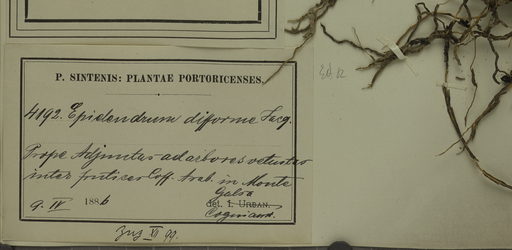 P. SINTENIS: PLANTAE PORTORICENSES.
4192. Epidendrum difforme Jacq.
Prope Adjuntas ad arbores vetustas
inter frutices Coff. Arab. in Monte
Gelsa
9. IV 1886 det. I. URBAN.
Cogniaux.
XI 99.